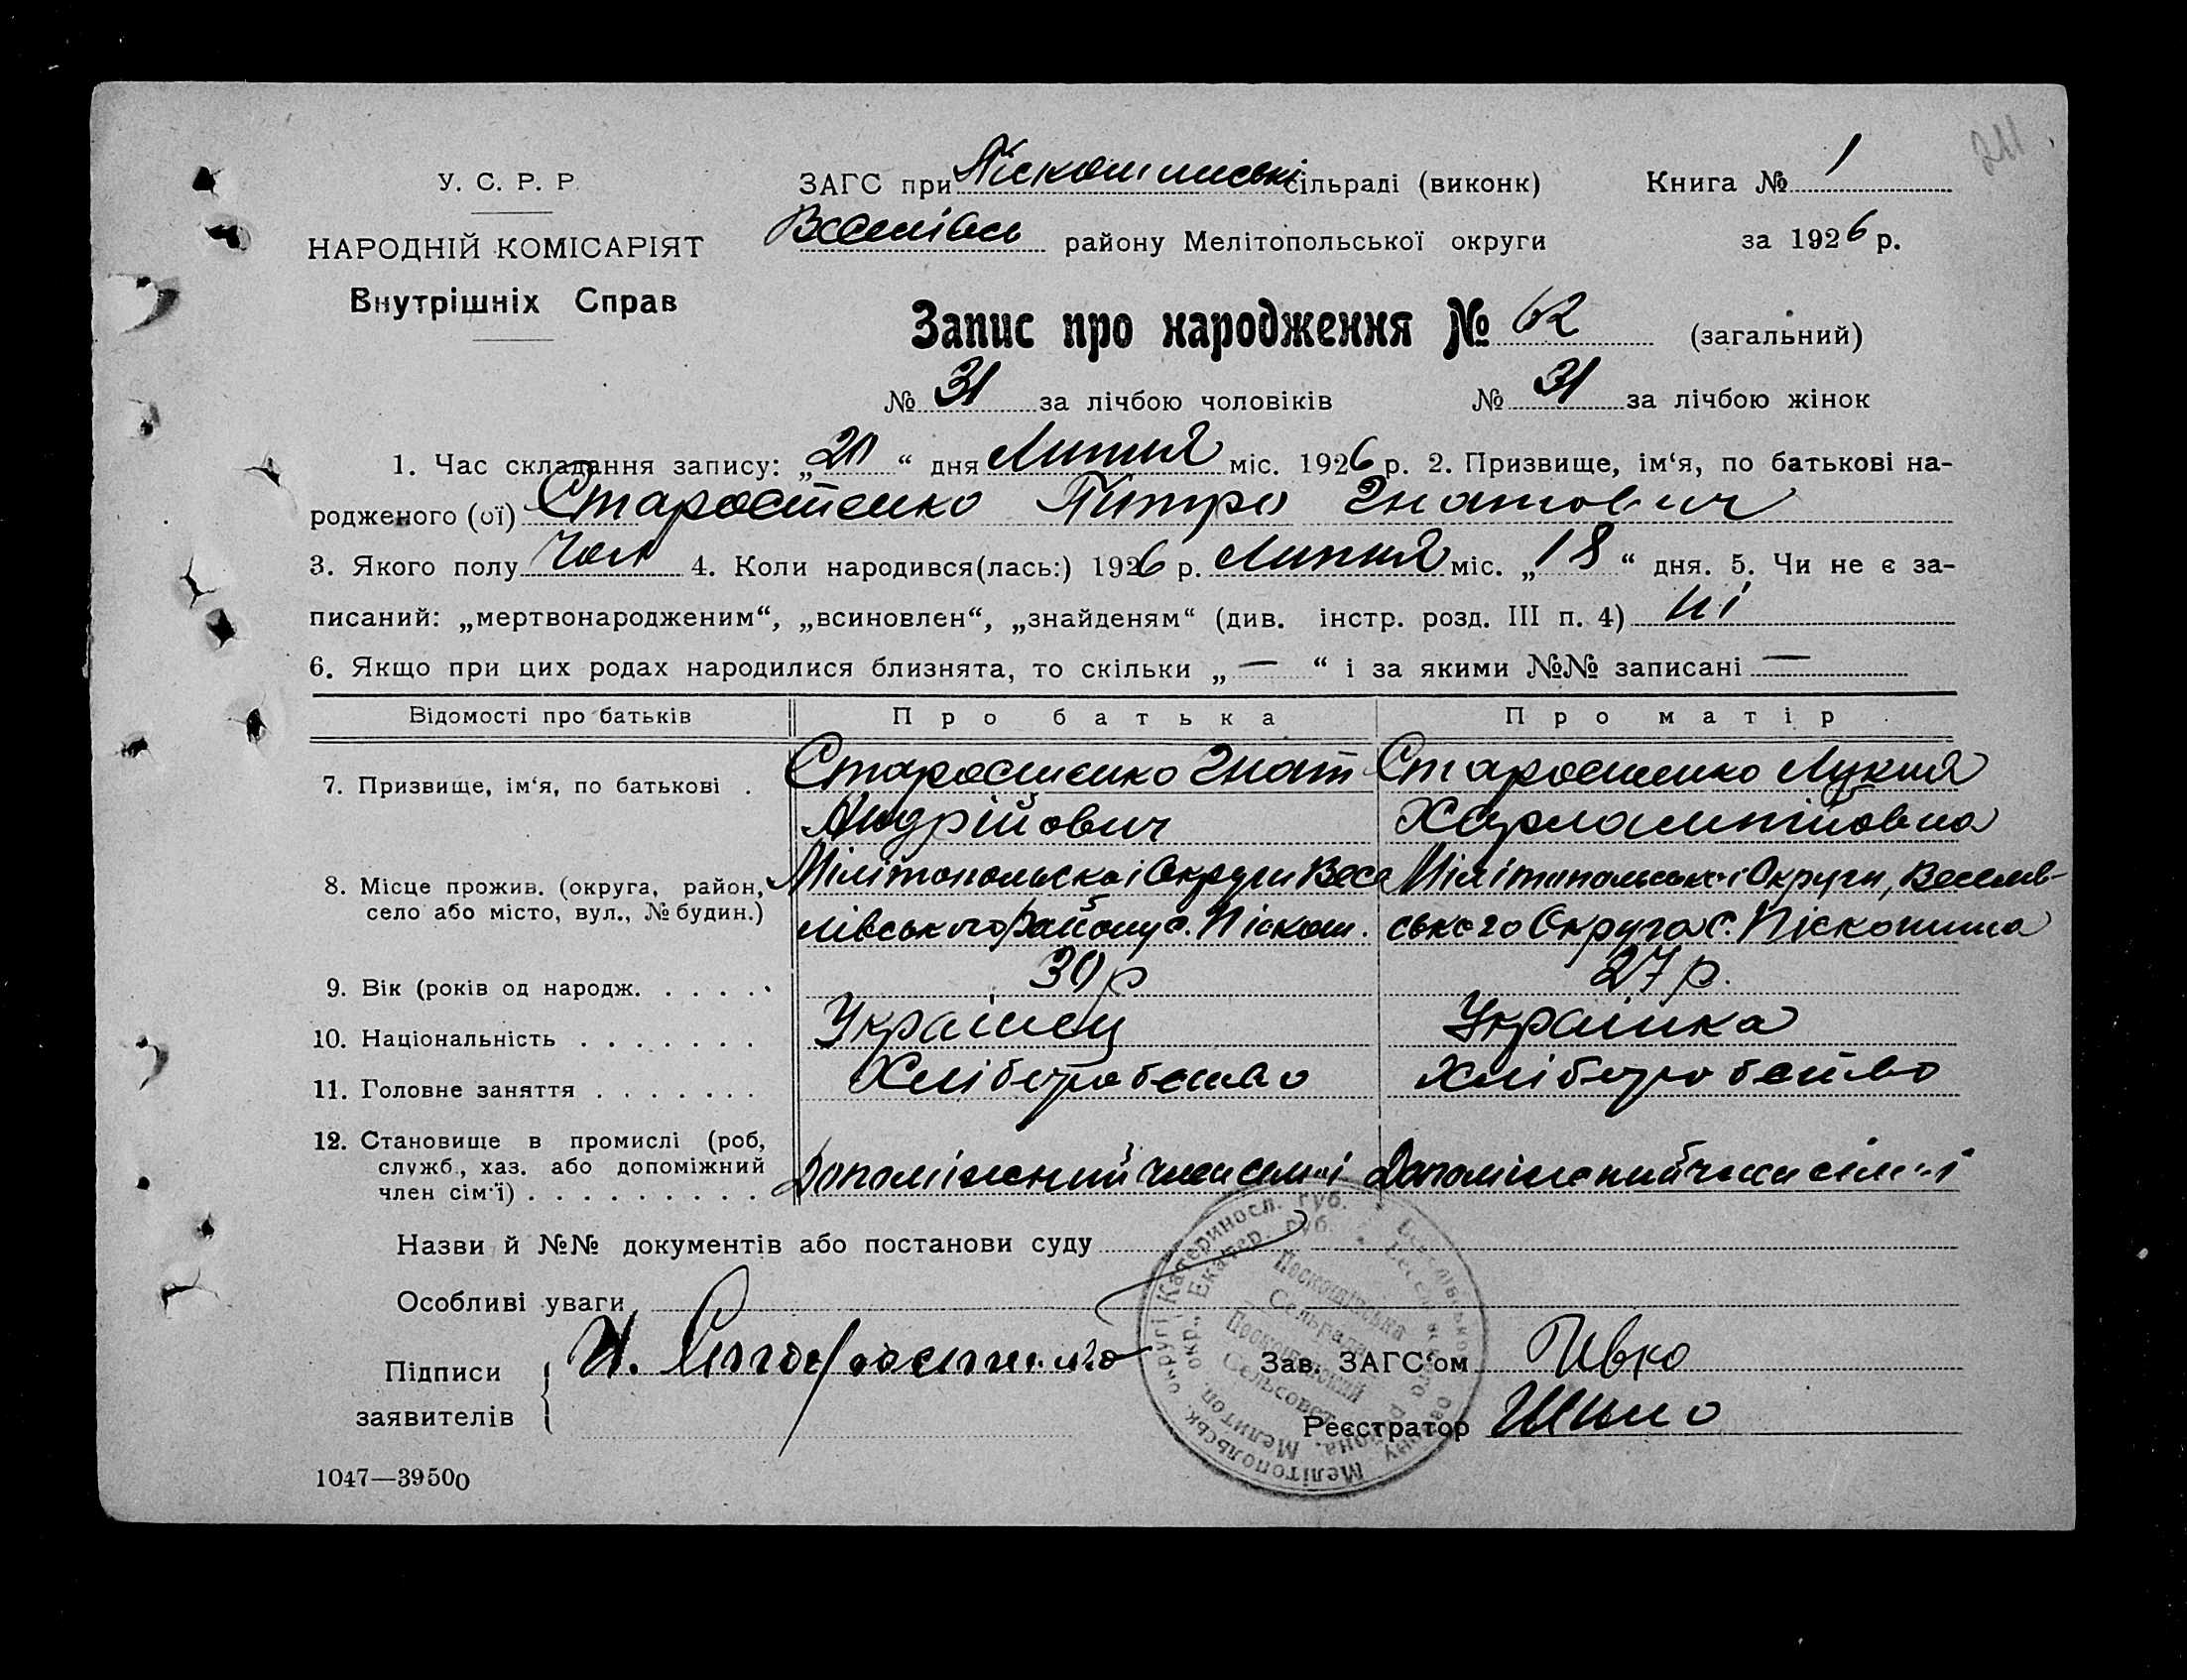 211
У. С. Р. Р.
НАРОДНІЙ КОМІСАРІЯТ
Внутрішніх Справ
ЗАГС при Піскошинські сільраді (виконк) Книга № 1
Веселівсь району Мелітопольської округи за 1926 р.
Запис про народження № 62 (загальний)
№ 31 за лічбою чоловіків № 31 за лічбою жінок
1. Час складання запису: „20“ дня Липня міс. 1926 р. 2. Призвище, ім‘я, по батькові на-
родженого (ої) Старостенко Питро Гнатович
3. Якого полу Чол 4. Коли народився(лась:) 1926 р. Липня міс. „18“ дня. 5. Чи не є за-
писаний: „мертвонародженим“, „всиновлен“, „знайденям“ (див. інстр. розд. III п. 4) ні
6. Якщо при цих родах народилися близнята, то скільки „—“ і за якими №№ записані —
Відомості про батьків Про батька Про матір
7. Призвище, ім‘я, по батькові . Старостенко Гнат Старостенко Лукия
Андрійович Харлампійовна
8. Місце прожив. (округа, район, Мілітопольскоі Округи Весе Мілітопольськоі Округи, Веселів-
село або місто, вул., № будин.) лівського Району с. Піскош. ського Округа с. Піскошина
9. Вік (років од народж. . . . . . 30 р 27 р.
10. Національність . . . . . . . Украінец Украінка
11. Головне заняття . . . . . . . Хліборобство Хліборобство
12. Становище в промислі (роб,
служб., хаз. або допоміжний Допоміжний член семі Допоміжний член сімі
член сім‘ї) . . . . . . . . . .
Назви й №№ документів або постанови суду
Особливі уваги
Підписи И. Старостенко Зав. ЗАГС‘ом Пивко
заявителів Реєстратор Шило
Катериносл. губ. Веселівського Району Мелітопольськ. округі
Екатер. губ. Мелитоп. окр.,
Сельрада
Сельсовет
1047—39500